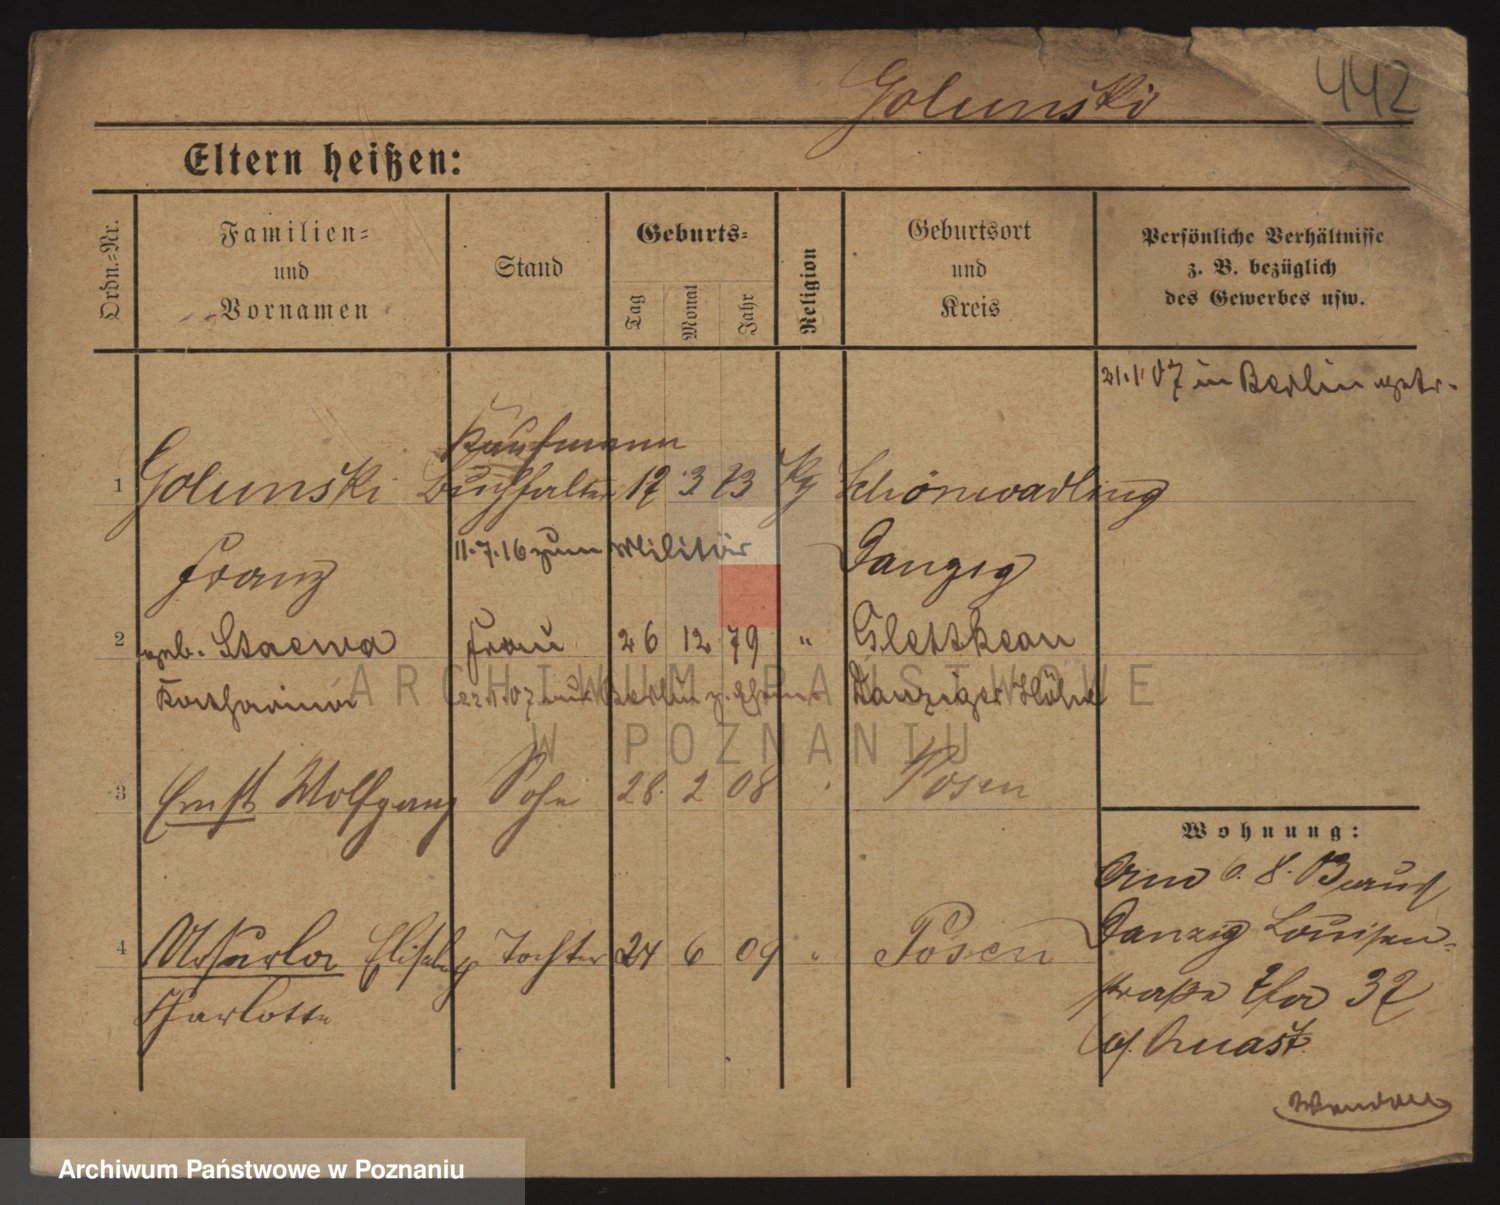 Golunski
442
Eltern heißen:
Ordn.-Nr.
Familien-
und
Vornamen
Stand
Geburts-
Tag
Monat
Jahr
Religion
Geburtsort
und
Kreis
Persönliche Verhältnisse
z. B. bezüglich
des Gewerbes usw.
21.1.07 in Berlin getr.
Kaufmann
1 Golunski Buchhalter 17 3 73 Kg Schönwarling
Franz 11.7.16 zum Militär Danzig
2 geb. Staewa Frau 26 12 79 " Glettkau
Katharina 22.1.07 aus Berlin z. Danziger Höhe
3 Ernst Wolfgang Sohn 28. 2 08 Posen
Wohnung:
Am 6. 8. Bureau
4 Ursula Elisabeth Tochter 24 6 09 " Posen
Danzig Louisen-
straße 37
Charlotte
b/ Quast
ARCHIWUM PAŃSTWOWE
W POZNANIU
Archiwum Państwowe w Poznaniu